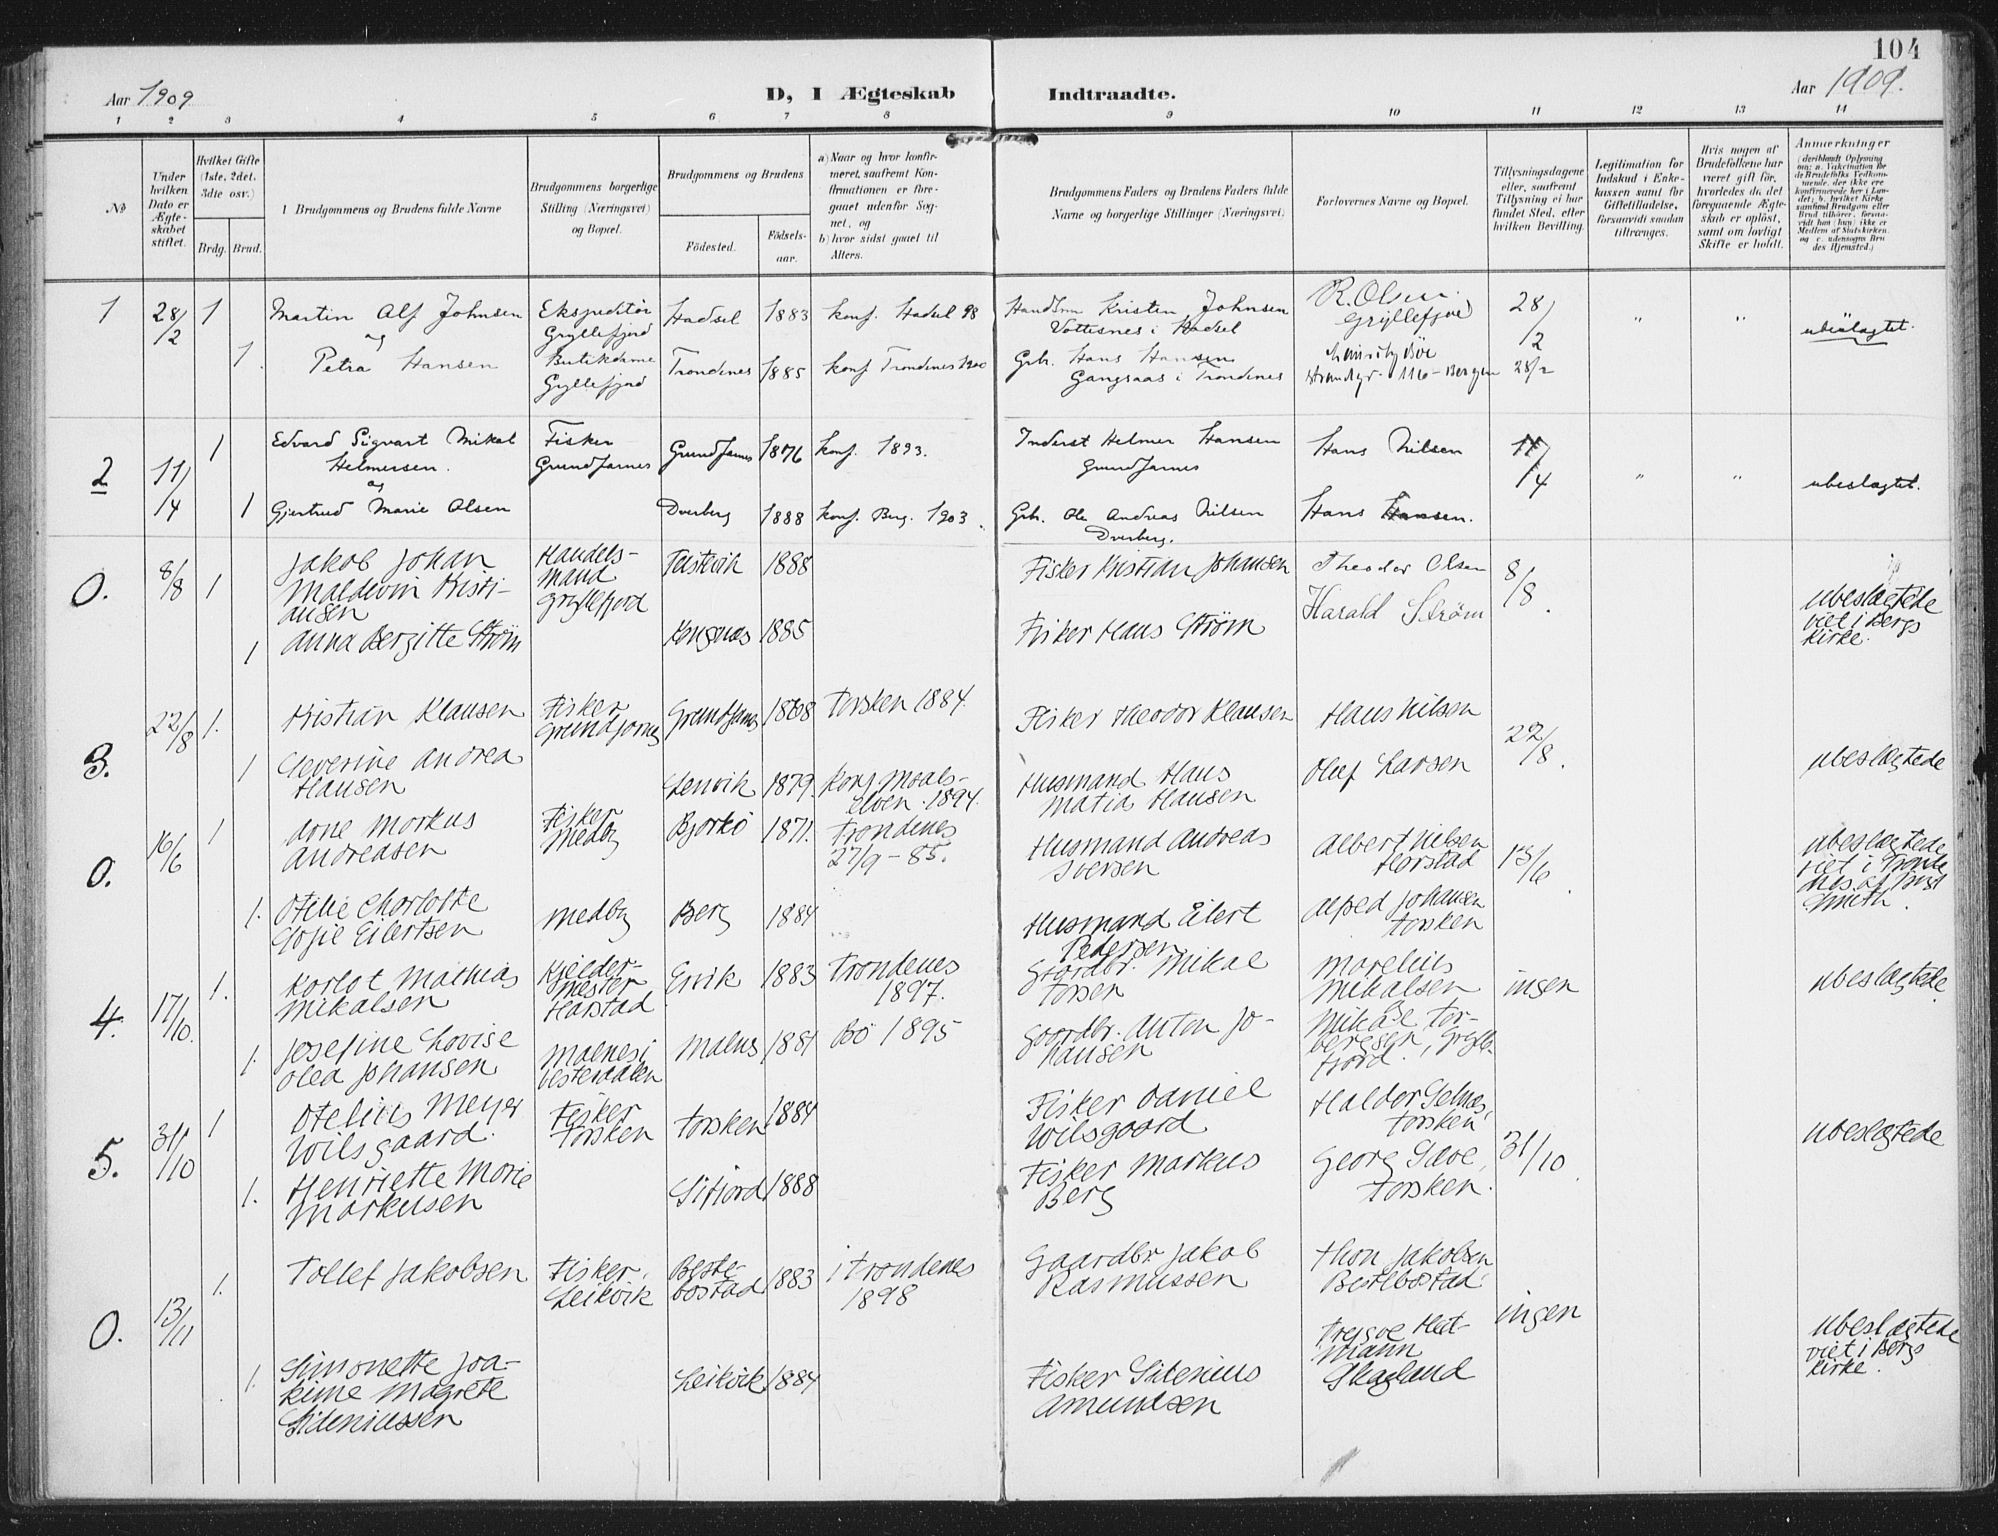 104
Aar 1909
D, I Ægteskab Indtraadte.
Aar 1909.
1 2 3 4 5 6 7 8 9 10 11 12 13 14
No
Under hvilken Dato er Ægteskabet stiftet.
Hvilket Gifte (1ste, 2det, 3die osv.)
Brdg. Brud.
1 Brudgommens og Brudens fulde Navne
Brudgommens borgerlige Stilling (Næringsvei) og Bopæl.
Brudgommens og Brudens
Fødested.
Fødselsaar.
a) Naar og hvor konfirmeret, saafremt Konfirmationen er foregaaet udenfor Sognet, og
b) hvor sidst gaaet til Alters.
Brudgommens Faders og Brudens Faders fulde Navne og borgerlige Stillinger (Næringsvei)
Forlovernes Navne og Bopæl.
Tillysningsdagene eller, saafremt Tillysning ei har fundet Sted, efter hvilken Bevilling.
Legitimation for Indskud i Enkekassen samt for Giftetilladelse, forsaavidt saadan tiltrænges.
Hvis nogen af Brudefolkene har været gift før, hvorledes da det foregaaende Ægteskab er opløst, samt om lovligt Skifte er holdt.
Anmærkninger
1 28/2 1 Martin Alf Johnsen Ekspeditør Gryllefjord Hadsel 1883 konf. Hadsel 98 Handlsm Kristen Johnsen Vottesnes i Hadsel R. Olsen Gryllefjord 28/2 " " ubeslægtet.
og
1. Petra Hansen Butikdame Gryllefjord Trondenes 1885 konf Trondenes 1900 Grb. Hans Hansen Gangsaas i Trondenes 116 - Bergen 28/2
2 11/4 1 Edvard Sigvart Mikal Helmersen. Fisker Grundfarnes Grundfarnes 1876 konf. 1893. Inderst Helmer Hansen Grundfarnes Hans Nilsen 11/4 " " ubeslægtet.
og
1 Gjertrud Marie Olsen Dverberg 1888 konf. Berg. 1903. Grb. Ole Andreas Nilsen Dverberg. Hans Hansen.
0. 8/8 1 Jakob Johan Maldevin Kristiansen Handelsmand Gryllefjord 1888 Fisker Kristian Johansen Theodor Olsen 8/8. ubeslægtede viet i Bergs Kirke.
1 Anna Bergitte Strøm Kongsnæs 1885 Fisker Hans Strøm Harald Strøm
3. 22/8 1. Kristian Klausen Fisker Grundfarnes Grundfarnes 1868 Torsken 1884. Fisker Theodor Klausen Hans Nilsen 22/8. ubeslægtede
1 Severine Andrea Hansen Lenvik 1879. Konf. Maalselven 1894. Husmand Hans Matias Hansen Oluf Larsen
0. 16/6 1 Arne Markus Andreasen Fisker Medby Bjorkö 1871. Trondenes 27/9 - 85. Husmand Andreas Iversen Albert Nilsen Harstad 13/6. ubeslægtede viet i Trondenes af
1. Otelie Charlotte Sofie Eilertsen Medby Berg 1884 Husmand Eilert Pedersen Alfred Johansen Torsken
4. 17/10. 1. Karlot Mathias Mikalsen Kjeldermester Harstad Ervik 1883 Trondenes 1897. Gaardbr. Mikal Torsen Marelius Mikalsen ingen ubeslægtede
1. Josefine Lovise Olea Johansen Malnes i Vesteraalen Malnes 1881 Bö 1895 Gaardbr. Anton Johansen Mikal Torbergsen, Grylefjord.
5. 31/10 1 Otelius Meyer Wilsgaard. Fisker Torsken Torsken 1884 Fisker Daniel Wilsgaard Haldor Selnæs, Torsken 31/10. ubeslægtede
1. Henriette Marie Markusen Sifjord 1888 Fisker Markus Berg Georg Sæve, Torsken.
0. 13/11 1. Tollef Jakobsen Fisker, Leikvik Bestebostad 1883 i Trondenes 1898 Gaardbr. Jakob Rasmussen Thon Jakobsen Bestebostad. ingen ubeslægtede viet i Bergs Kirke.
1. Simonette Joakime Magrete Sideniussen Leikvik 1884 Fisker Sidenius Amundsen Skagland